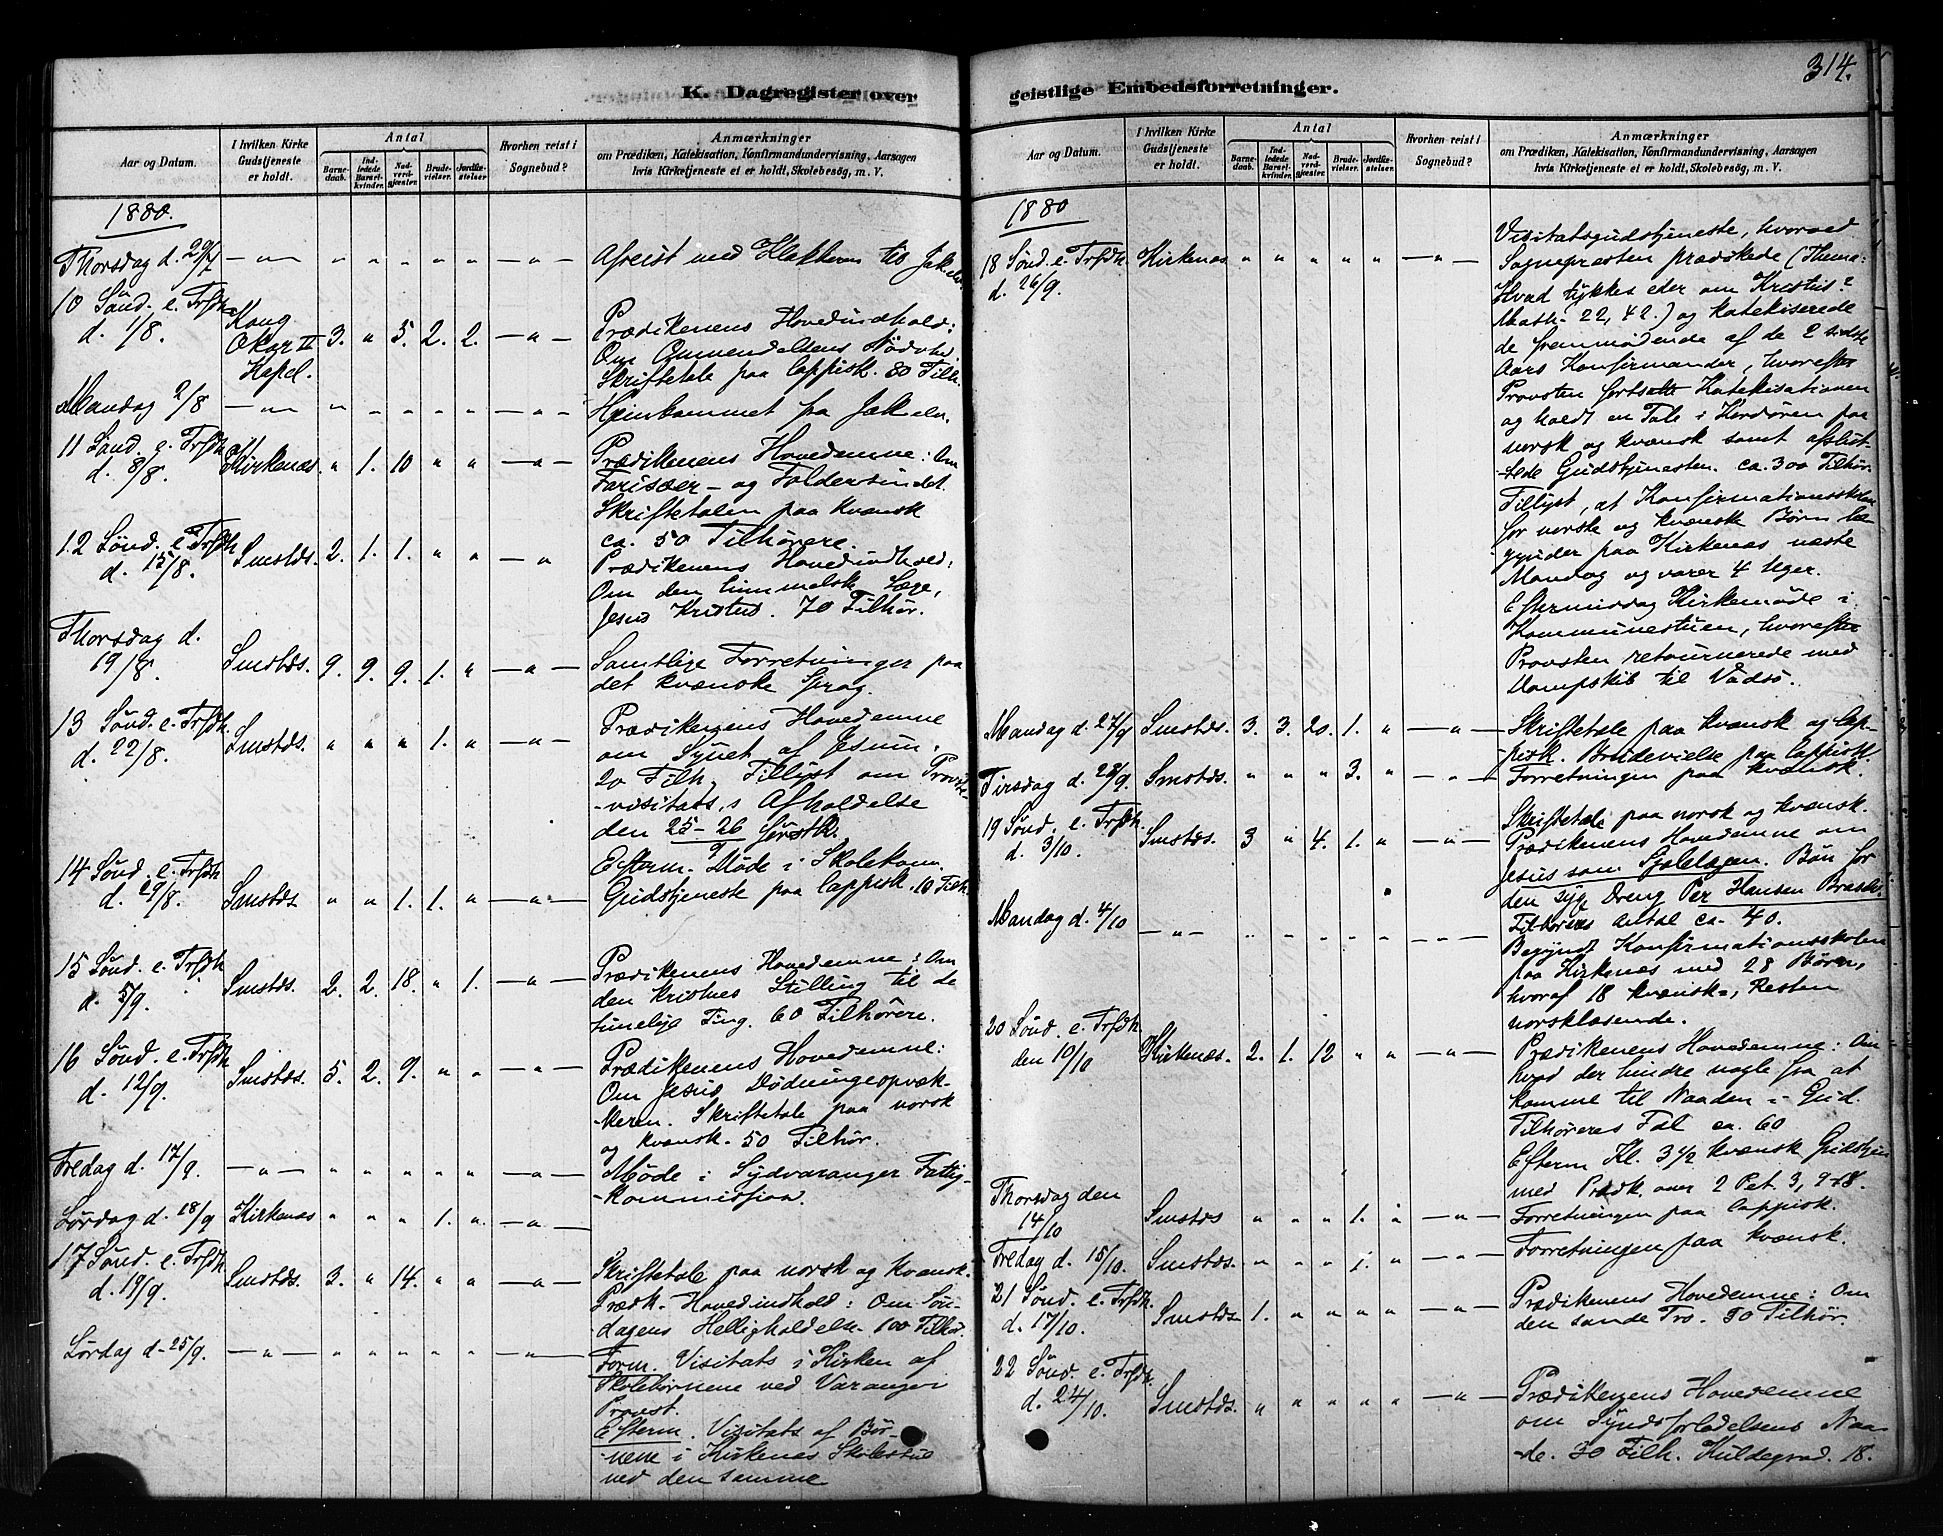 314.
K. Dagregister over
geistlige Embedsforretninger.
Aar og Datum.
I hvilken Kirke
Gudstjeneste
er holdt.
Antal
Barne-
daab.
Ind-
ledede
Barsel-
kvinder.
Nad-
verd-
gjæster.
Brude-
vielser.
Jordfæ-
stelser.
Hvorhen reist i
Sognebud?
Anmærkninger
om Prædiken, Katekisation, Konfirmandundervisning, Aarsagen
hvis Kirketjeneste ei er holdt, Skolebesøg, m. V.
1880.
Thorsdag d. 29/7 — " — " " " " " — " — Afreist med til
10 Sønd. e. Trfdh.
d. 1/8. Kong
Oscar II
Kapel. 3. " 5. 2. 2. — " — Prædikenens Hovedindhold:
Om Omvendelsens Nødvhd.
Skriftetale paa lappisk. 80 Tilh.
Mandag 2/8 — " — " " " " " — " — Heimkommet fra
11 Sønd. e. Trfdh.
d. 8/8. Kirkenæs. " 1. 10 " " — " — Prædikenens Hovedemne: Om
Farisæer- og Toldersindet.
Skriftetalen paa kvænsk
ca. 50 Tilhørere.
12 Sønd. e. Trfdh.
d. 15/8. Smstds. 2. 1. 1. " " — " Prædikenens Hovedindhold:
Om den himmelsk Læge,
Jesus Kristus. 70 Tilhør.
Thorsdag d.
19/8. Smstds. 9. 9. 9. 1. " — " — Samtlige Forretninger paa
det kvænske Sprog.
13 Sønd. e. Trfdh.
d. 22/8. Smstds. " " " 1. " — " — Prædikenens Hovedemne
om Synet af Jesum.
20 Tilh. Tillyst om Provste-
-visitats's Afholdelse
den 25-26
14 Sønd. e. Trfdh.
d. 29/8. Smstds " " 1. 1. " — " — Efterm. Møde i Skolekom.
Gudstjeneste paa lappisk. 10 Tilh.
15 Sønd. e. Trfdh.
d. 5/9. Smstds. 2. 2. 18. " 1. — " — Prædikenens Hovedemne: Om
den kristnes Stilling til de
timelige Ting. 60 Tilhørere.
16 Sønd. e. Trfdh
d. 12/9. Smstds. 5. 2. 9. " " — " — Prædikenens Hovedemne:
Om Jesus Dødningeopvæk-
keren. Skriftetale paa norsk
og kvænsk. 50 Tilhør.
Fredag d. 17/9. — " — " " " " " — " — Møde i Sydvaranger Fattig-
-kommission.
Lørdag d. 18/9 Kirkenæs " " " 1. " — " —
17 Sønd. e. Trfdh
d. 19/9. Smstds. 3. " 14. " " — " — Skriftetale paa norsk og kvænsk.
Prædk. Hovedindhold: Om Søn-
dagens Helligholdelse. 100 Tilhør.
Lørdag d. 25/9. — " — " " " " " — " — Form. Visitats i Kirken af
Skolebørnene ved Varanger
Provst.
Efterm. Visitats af Bør-
nene i Kirkenæs Skolestue
ved den samme
Aar og Datum.
I hvilken Kirke
Gudstjeneste
er holdt.
Antal
Barne-
daab.
Ind-
ledede
Barsel-
kvinder.
Nad-
verd-
gjæster.
Brude-
vielser.
Jordfæ-
stelser.
Hvorhen reist i
Sognebud?
Anmærkninger
om Prædiken, Katekisation, Konfirmandundervisning, Aarsagen
hvis Kirketjeneste ei er holdt, Skolebesøg, m. V.
1880
18 Sønd. e. Trfdh.
d. 26/9. Kirkenæs " " " " " — " — Visitatsgudstjeneste, hvorved
Sognepræsten prædikede (Thema:
Hvad tykkes eder om Kristus?
Math. 22, 42.) og katekiserede
de fremmødende af de 2 sidste
Aars Konfirmander, hvorefter
Provsten fortsatte Katekisationen
og holdt en Tale i Kordøren paa
norsk og kvænsk samt afslut-
-tede Gudstjenesten. ca. 300 Tilhør.
Tillyst, at Konfirmationsskolen
for norske og kvænske Børn be-
gynder paa Kirkenæs næste
Mandag og varer 4 Uger.
Eftermiddag Kirkemøde i
Kommunestuen, hvorefter
Provsten retournerede med
Dampskib til Vadsø.
Mandag d. 27/9 Smstds. 3. 3. 20. 1. " — " — Skriftetale paa kvænsk og lap-
pisk. Brudevielse paa lappisk.
Tirsdag d. 28/9. Smstds. " " " 3. " — " — Forretningen paa kvænsk.
19 Sønd. e. Trfdh.
d. 3/10. Smstds. 3 " 4. 1. " — " — Skriftetale paa norsk og kvænsk.
Prædikenens Hovedemne om
Jesus som Sjælelægen. Bøn for
den syge Dreng Per Hansen
Tilhøreres Antal ca. 40.
Mandag d. 4/10 — " — " " " " " — " — Begyndt Konfirmationsskolen
paa Kirkenæs med 28 Børn,
hvoraf 18 kvænsk-, Resten
norsklæsende.
20 Sønd. e. Trfdh.
den 10/10 Kirkenæs. 2. 1. 12 " " — " — Prædikenens Hovedemne: Om
hvad der hindre nogle fra at
komme til Naaden i Gud.
Tilhøreres Tal ca. 60
Efterm Kl. 3 1/2 kvænsk Gudstjen
med Prædk. over 2 Pet. 3, 9-18.
Thorsdag den
14/10 Smstds " " " 1. " — " — Forretningen paa lappisk.
Fredag d. 15/10. Smstds. " " " 1. " — " — Forretningen paa kvænsk.
21 Sønd. e. Trfdh.
d. 17/10. Smstds. 1. " " " " — " — Prædikenens Hovedemne: Om
den sande Tro. 50 Tilhør.
22 Sønd. e. Trfdh.
d. 24/10. Smstds. " " " " " — " — Prædikenens Hovedemne
om Syndsforladelsens Naa-
-de. 30 Tilh. Kuldegrad. 18.